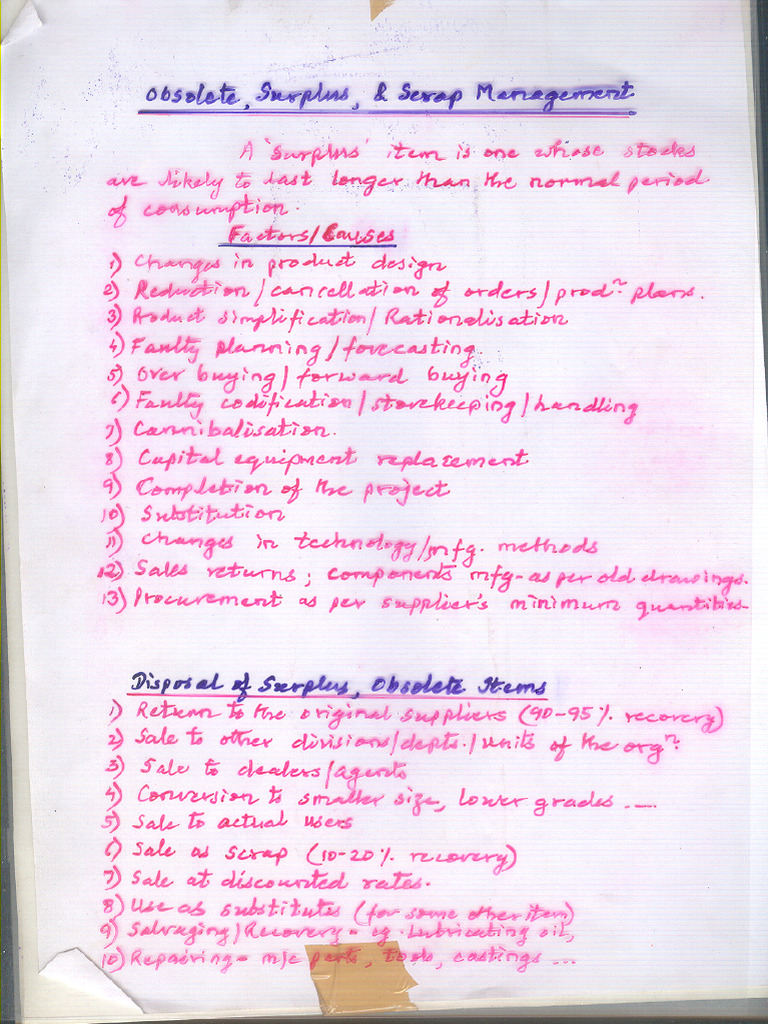 Obsolete, Surplus, & Scrap Management
A 'Surplus' item is one whose stocks
are likely to last longer than the normal period
of consumption.
Factors/Causes
1) Changes in product design
2) Reduction/cancellation of orders/prodⁿ plans.
3) Product simplification/Rationalisation
4) Faulty planning/forecasting
5) Over buying/forward buying
6) Faulty codification/storekeeping/handling
7) Cannibalisation.
8) Capital equipment replacement
9) Completion of the project
10) Substitution
11) Changes in technology/mfg. methods
12) Sales returns; components mfg- as per old drawings.
13) Procurement as per supplier's minimum quantities-
Disposal of Surplus, Obsolete Items
1) Return to the original suppliers (90-95% recovery)
2) Sale to other divisions/depts./units of the orgⁿ.
3) Sale to dealers/agents
4) Conversion to smaller size, lower grades ....
5) Sale to actual users
6) Sale as scrap (10-20% recovery)
7) Sale at discounted rates.
8) Use as substitutes (for some other item)
9) Salvaging/Recovery- eg. Lubricating oil,
10) Repairing- m/c parts, tools, castings ...